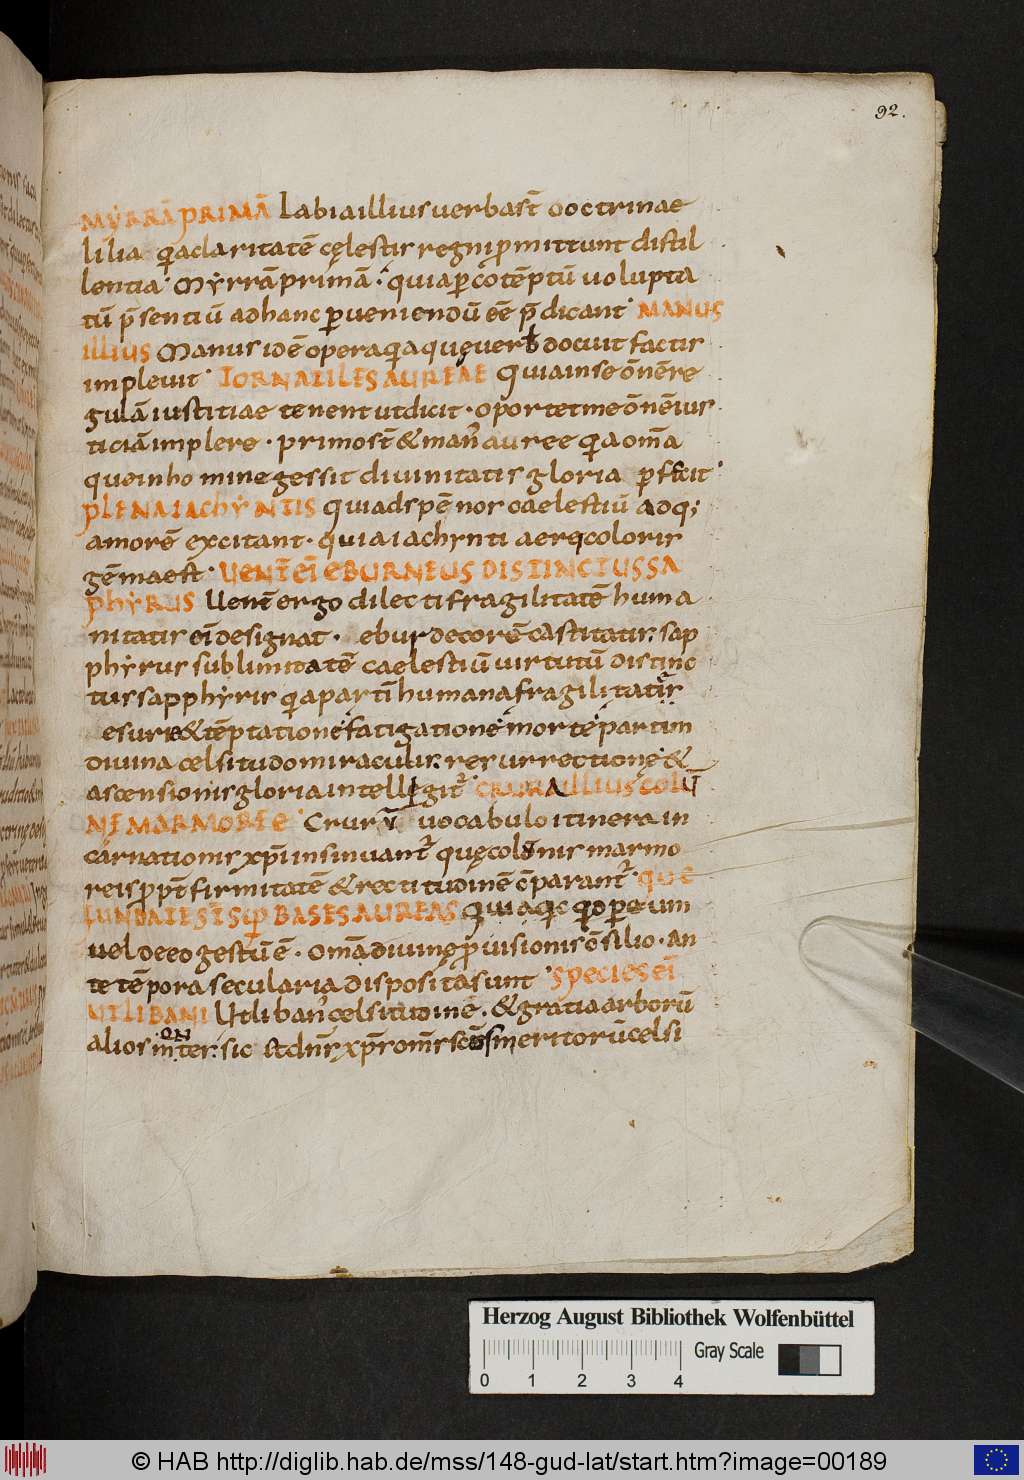 92.
MYRRĀ PRIMĀ Labia illius uerba st̄ doctrinae
lilia qia claritatē cęlestis regni pmittunt distil
lentia · Myrrā primā · quia p cōtēptū uolupta
tū p̄sentiū ad hanc perueniendū eē p̄dicant · MANUS
ILLIUS Manus idē opera qia quę uerb docuit factis
impleuit · TORNATILES AUREAE Quia in se ōnē re
gulā iustitiae tenent ut dicit · oportet me ōnē ius
ticiā implere · primo st̄ & man auree qia om̄a
que in homine gessit diuinitatis gloria pfecit
PLENA IACHYNTIS quia ad spē nos caelestiū adq;
amorē excitant · quia iachynti aerei coloris
gēma est · UENT̄ EI EBURNEUS DISTINCTUS SA
PHYRUS Uent̄ ergo dilecti fragilitatē huma
nitatis ei designat · ebur decorē castitatis · sap
phyrus sublimitatē caelestiū uirtutū distinc
tus sapphyris qia partī humana fragilitatis
esurie & tēptatione fatigatione morte partim
diuina celsitudo miraculis resurrectione &
ascensionis gloria intellegit̄ CRURA ILLIUS COLŪ
NE MARMOREE Crurū uocabulo itinera in
carnationis xp̄i insinuant̄ quę colonis marmo
reis ppt firmitatē & rectitudinē cōparant̄ · QUE
FUNDATE ST̄ SUP BASES AUREAS Quia qicqid p eum
uel de eo gestū ē · om̄a diuinę puisionis cōsilio · an
te tēpora secularia disposita sunt · SPECIES EI
UT LIBANI Ut liban celsitudine · & gratia arborū
alios mōntes · sic st dn̄s xp̄s om̄s scōs meritorū celsi
Herzog August Bibliothek Wolfenbüttel
Gray Scale
0 1 2 3 4
© HAB http://diglib.hab.de/mss/148-gud-lat/start.htm?image=00189